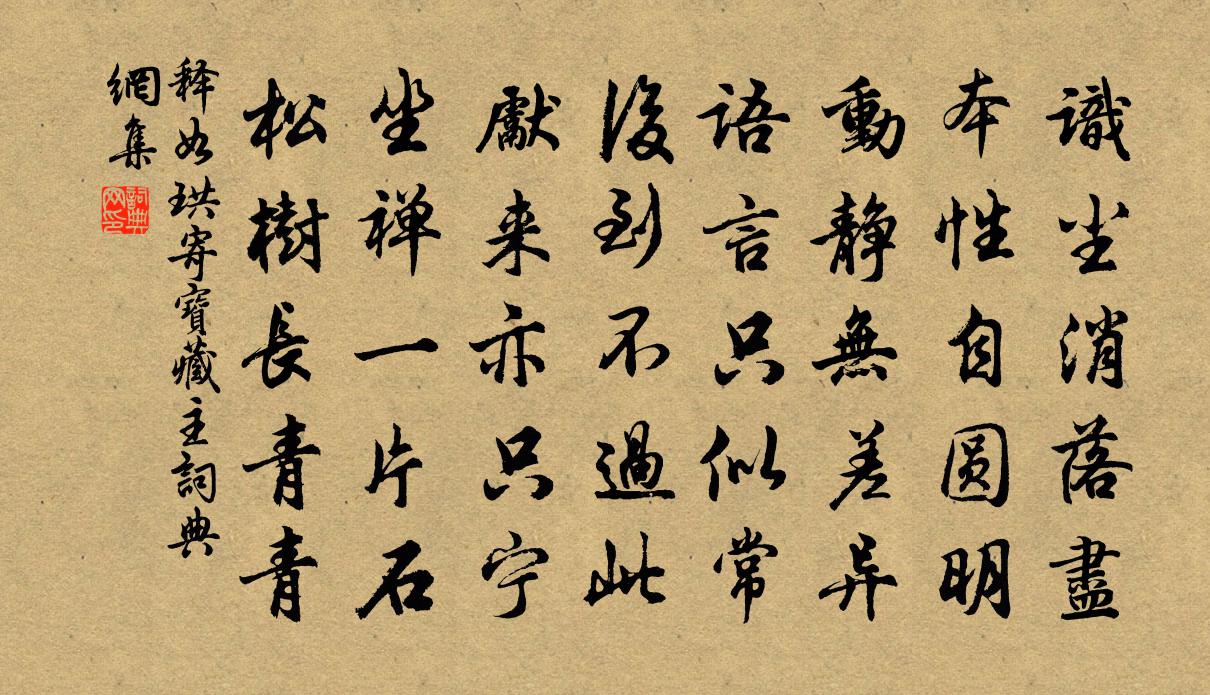 識尘消落盡
本性自圆明
動静無差异
語言只似常
後到不過此
獻来亦只宁
坐禅一片石
松樹長青青
释如珙寄寶藏主詞典
網集
詞典网印